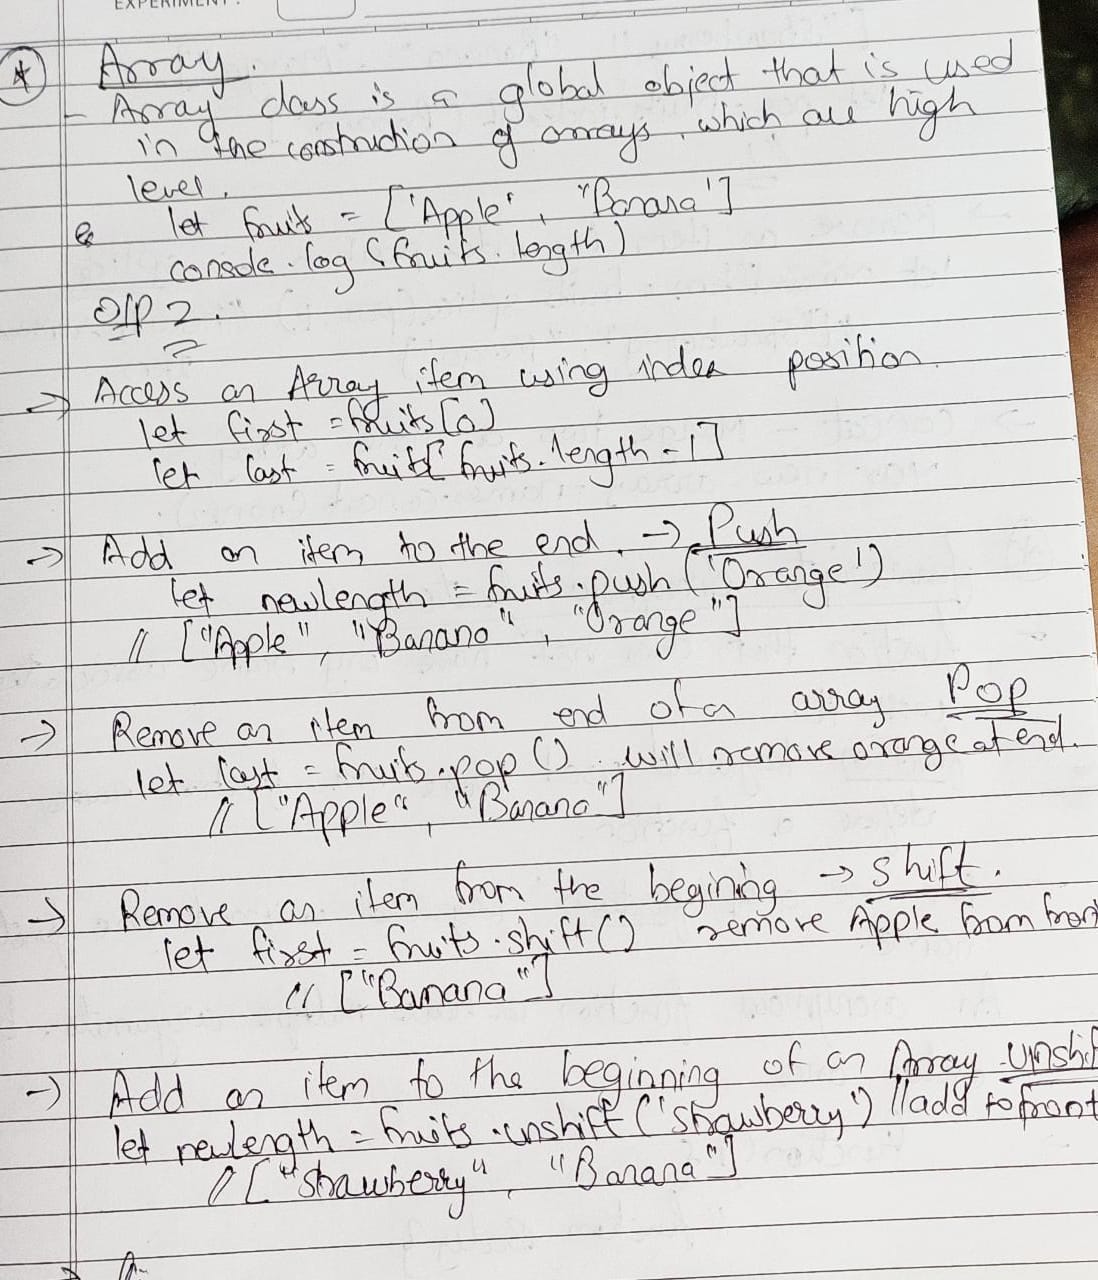 EXPERIMENT :
* Array.
- Array class is a global object that is used
in the construction of arrays, which are high
level.
let fruits = ['Apple', "Banana']
console.log (fruits.length)
O/P 2.
→ Access an Array item using index position
let first = fruits[0]
let last = fruits[fruits.length - 1]
→ Add an item to the end. → Push
let newlength = fruits.push('Orange')
// ["Apple", "Banana", "Orange"]
→ Remove an item from end of a array Pop
let last = fruits.pop() will remove orange at end.
// ["Apple", "Banana"]
→ Remove an item from the begining → shift.
let first = fruits.shift() remove Apple from fron
// ["Banana"]
→ Add an item to the beginning of an Array - Unshif
let newlength = fruits.unshift('strawberry') //add to front
// ["strawberry", "Banana"]